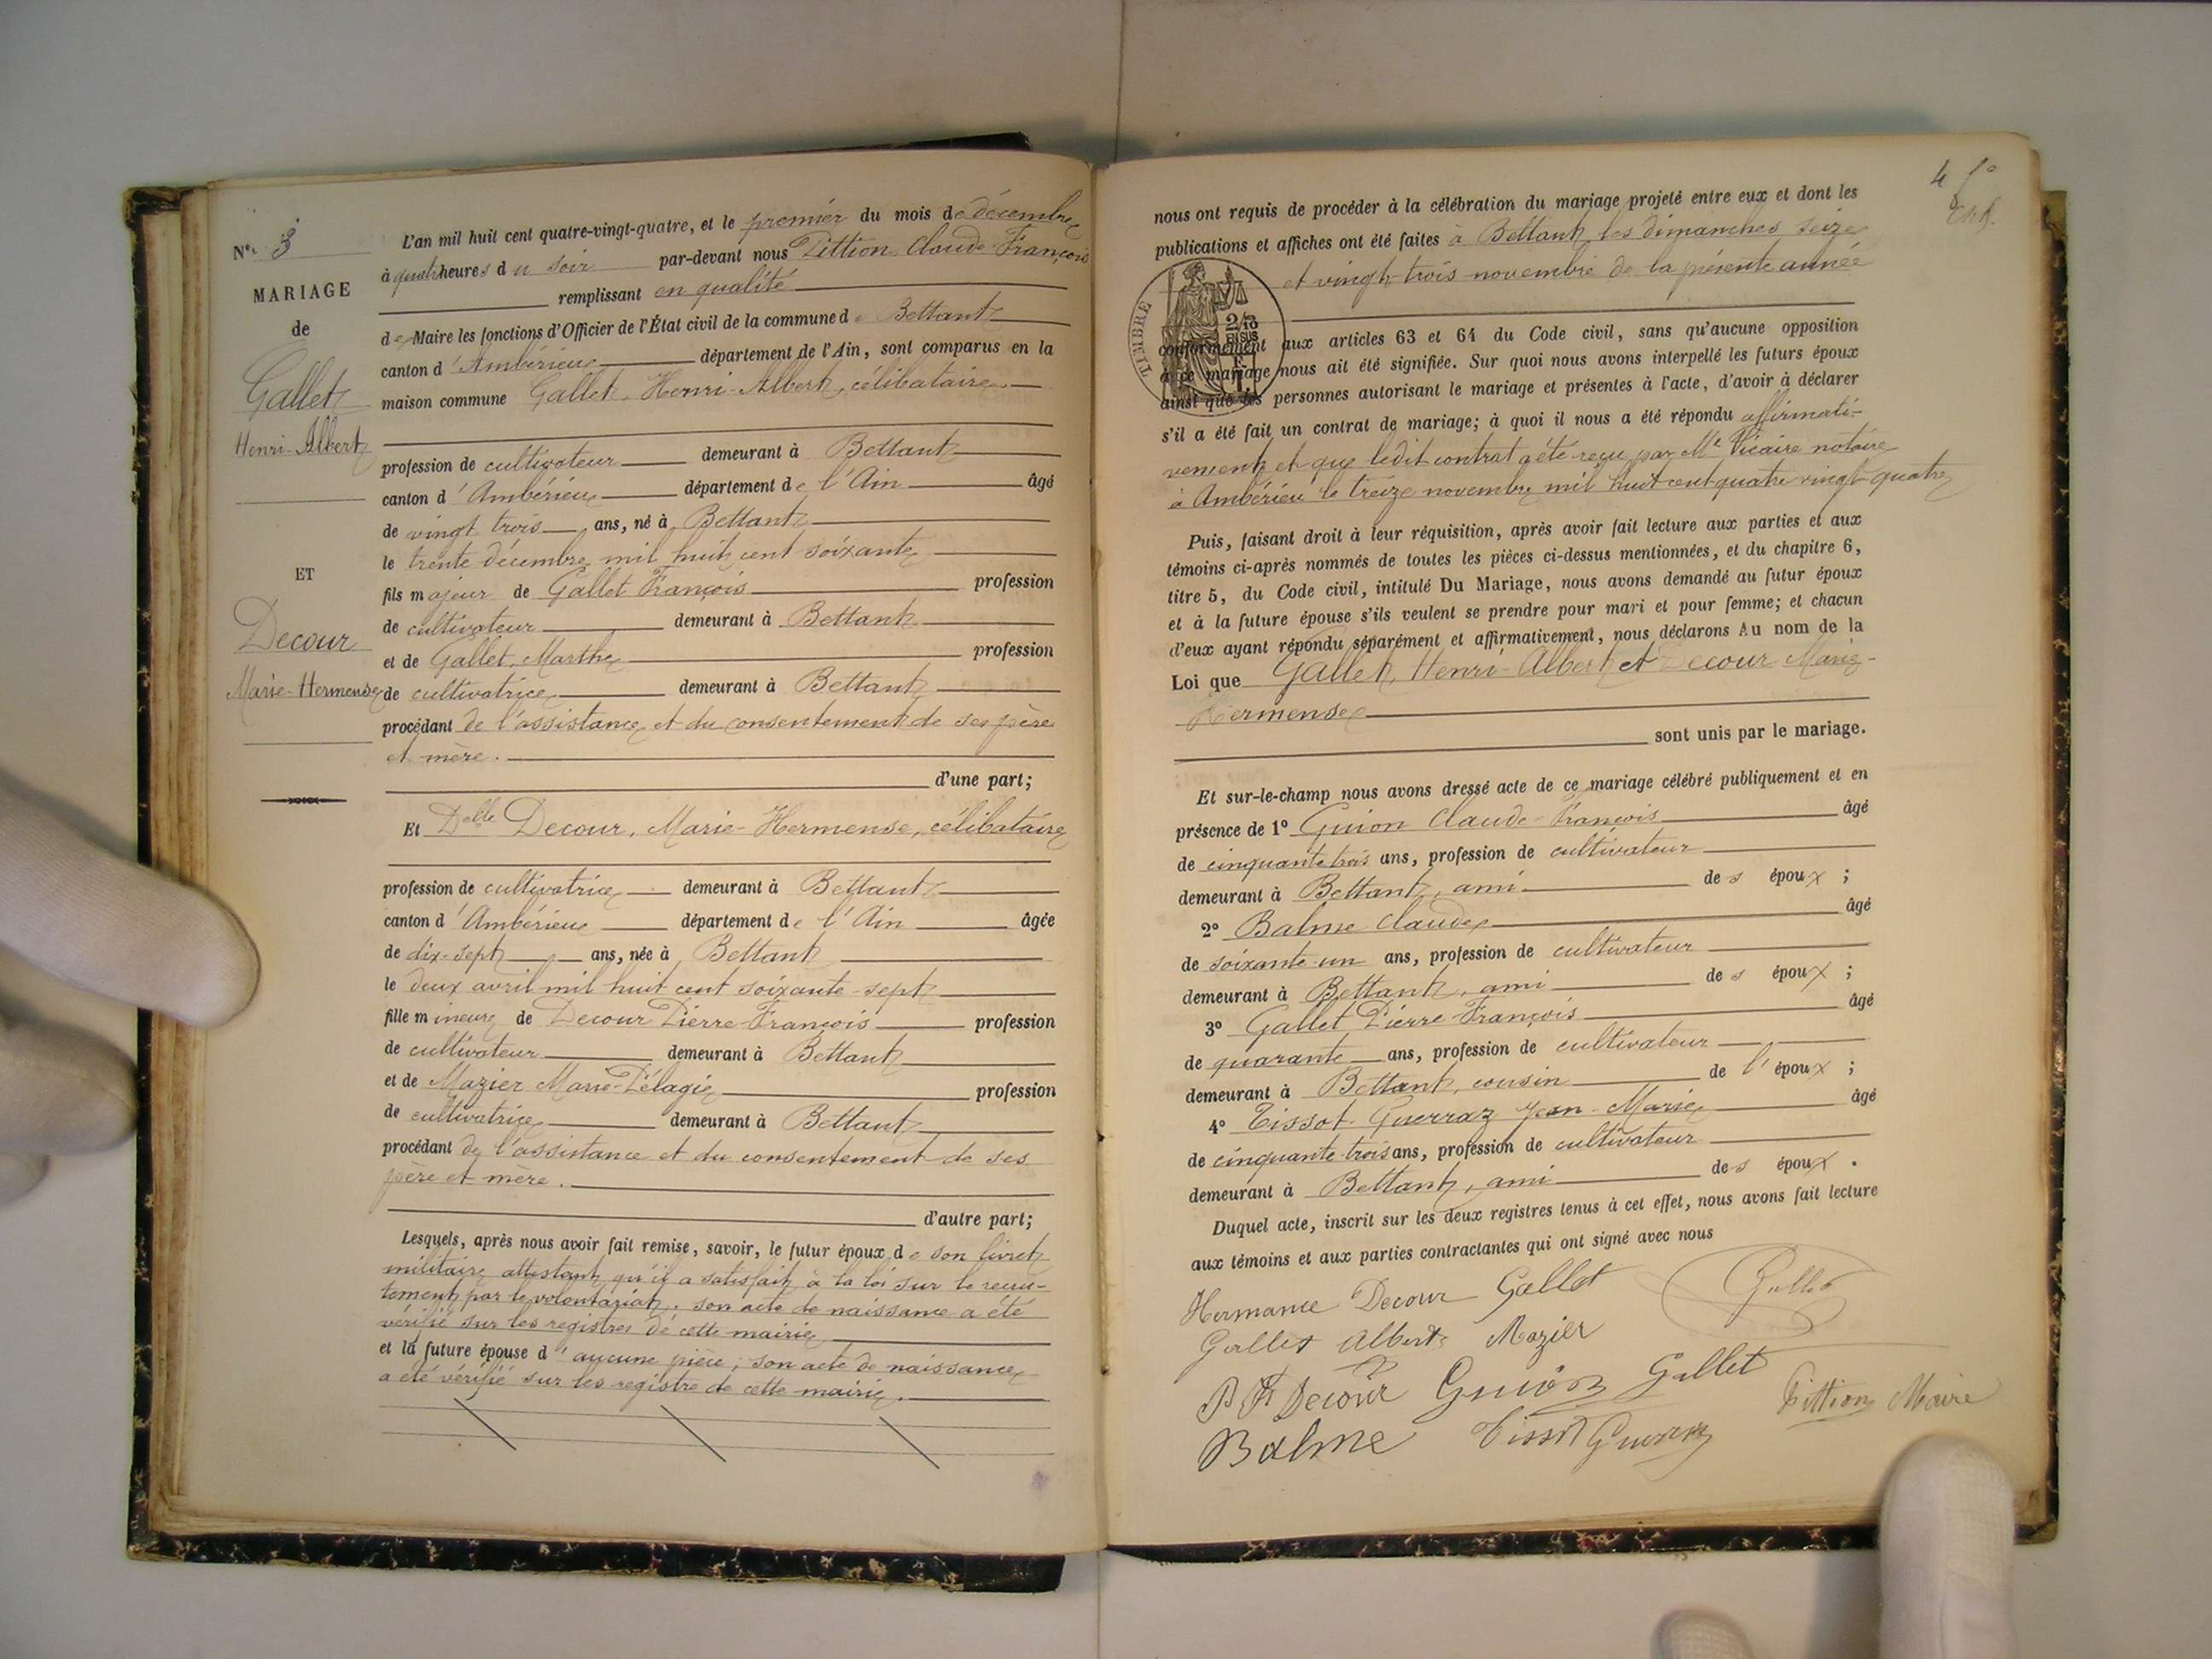 N° 3
MARIAGE
de
Gallet
Henri-Albert
ET
Decour
Marie-Hermense
L'an mil huit cent quatre-vingt-quatre, et le premier du mois de décembre
à quatre heures du soir par-devant nous Pittion Claude-François
remplissant en qualité
de Maire les fonctions d'Officier de l'État civil de la commune de Bettant
canton d'Ambérieu département de l'Ain, sont comparus en la
maison commune Gallet, Henri-Albert, célibataire
profession de cultivateur demeurant à Bettant
canton d'Ambérieu département de l'Ain âgé
de vingt trois ans, né à Bettant
le trente décembre mil huit cent soixante
fils majeur de Gallet François profession
de cultivateur demeurant à Bettant
et de Gallet, Marthe profession
de cultivatrice demeurant à Bettant
procédant de l'assistance et du consentement de ses père
et mère.
d'une part;
Et Delle Decour, Marie-Hermense, célibataire
profession de cultivatrice demeurant à Bettant
canton d'Ambérieu département de l'Ain âgée
de dix-sept ans, née à Bettant
le deux avril mil huit cent soixante-sept
fille mineure de Decour Pierre-François profession
de cultivateur demeurant à Bettant
et de Mazier Marie-Pélagie profession
de cultivatrice demeurant à Bettant
procédant de l'assistance et du consentement de ses
père et mère.
d'autre part;
Lesquels, après nous avoir fait remise, savoir, le futur époux de son livret
militaire attestant qu'il a satisfait à la loi sur le recru-
tement par le volontariat. son acte de naissance a été
vérifié sur les registres de cette mairie
et la future épouse d'aucune pièce; son acte de naissance
a été vérifié sur les registre de cette mairie.
4 f°
nous ont requis de procéder à la célébration du mariage projeté entre eux et dont les
publications et affiches ont été faites à Bettant les dimanches seize
et vingt-trois novembre de la présente année
TIMBRE
conformément aux articles 63 et 64 du Code civil, sans qu'aucune opposition
à ce mariage nous ait été signifiée. Sur quoi nous avons interpellé les futurs époux
ainsi que les personnes autorisant le mariage et présentes à l'acte, d'avoir à déclarer
s'il a été fait un contrat de mariage; à quoi il nous a été répondu affirmati-
vement et que ledit contrat a été reçu par Me Vicaire notaire
à Ambérieu le treize novembre mil huit cent quatre vingt-quatre
Puis, faisant droit à leur réquisition, après avoir fait lecture aux parties et aux
témoins ci-après nommés de toutes les pièces ci-dessus mentionnées, et du chapitre 6,
titre 5, du Code civil, intitulé Du Mariage, nous avons demandé au futur époux
et à la future épouse s'ils veulent se prendre pour mari et pour femme; et chacun
d'eux ayant répondu séparément et affirmativement, nous déclarons Au nom de la
Loi que Gallet, Henri-Albert et Decour Marie-
Hermense
sont unis par le mariage.
Et sur-le-champ nous avons dressé acte de ce mariage célébré publiquement et en
présence de 1° Guion Claude-François âgé
de cinquante trois ans, profession de cultivateur
demeurant à Bettant, ami des époux ;
2° Balme Claude âgé
de soixante-un ans, profession de cultivateur
demeurant à Bettant, ami des époux ;
3° Gallet Pierre-François âgé
de quarante ans, profession de cultivateur
demeurant à Bettant, cousin de l'époux ;
4° Tissot-Guerraz Jean-Marie âgé
de cinquante-trois ans, profession de cultivateur
demeurant à Bettant, ami des époux.
Duquel acte, inscrit sur les deux registres tenus à cet effet, nous avons fait lecture
aux témoins et aux parties contractantes qui ont signé avec nous
Hermance Decour Gallet Gallet
Gallet Albert Mazier
P F Decour Guion Gallet
Pittion Maire
Balme Tissot Guerraz